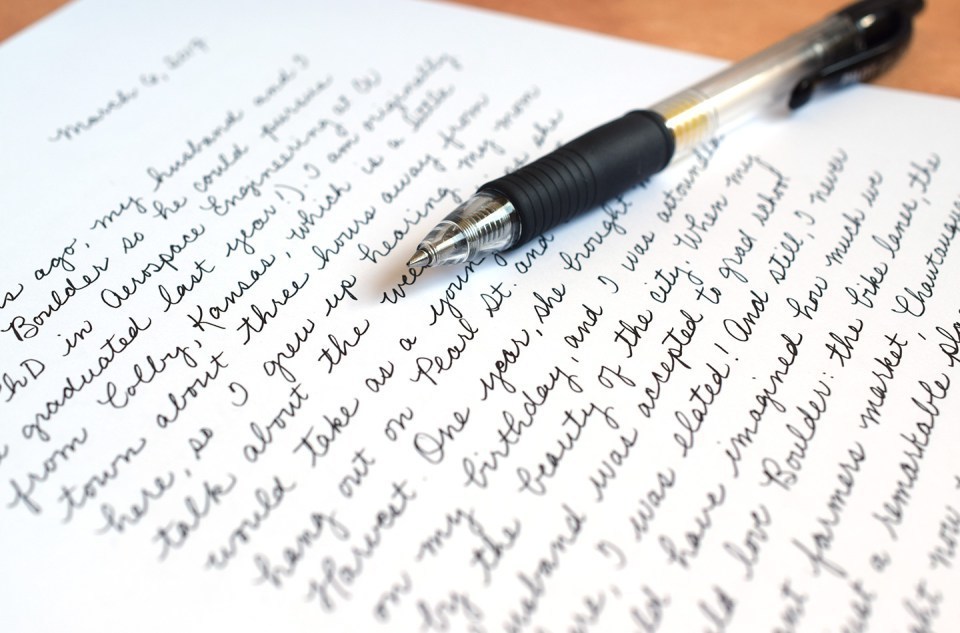 March 6,
ago, my husband and I
Boulder so he could pursue
PhD in Aerospace Engineering at
graduated last year!). I am originally
from Colby, Kansas, which is a little
town about three hours away from
here, so I grew up hearing my mom
talk about the she
would take as a
hang out on Pearl St. and
Harvest. One year, she brought
on my birthday, and I was
by the beauty of the city. When my
husband was accepted to grad school
I was elated! And still, I never
have imagined how much we
love Boulder: the bike lanes, the
farmers market, Chautauqua
a remarkable
now